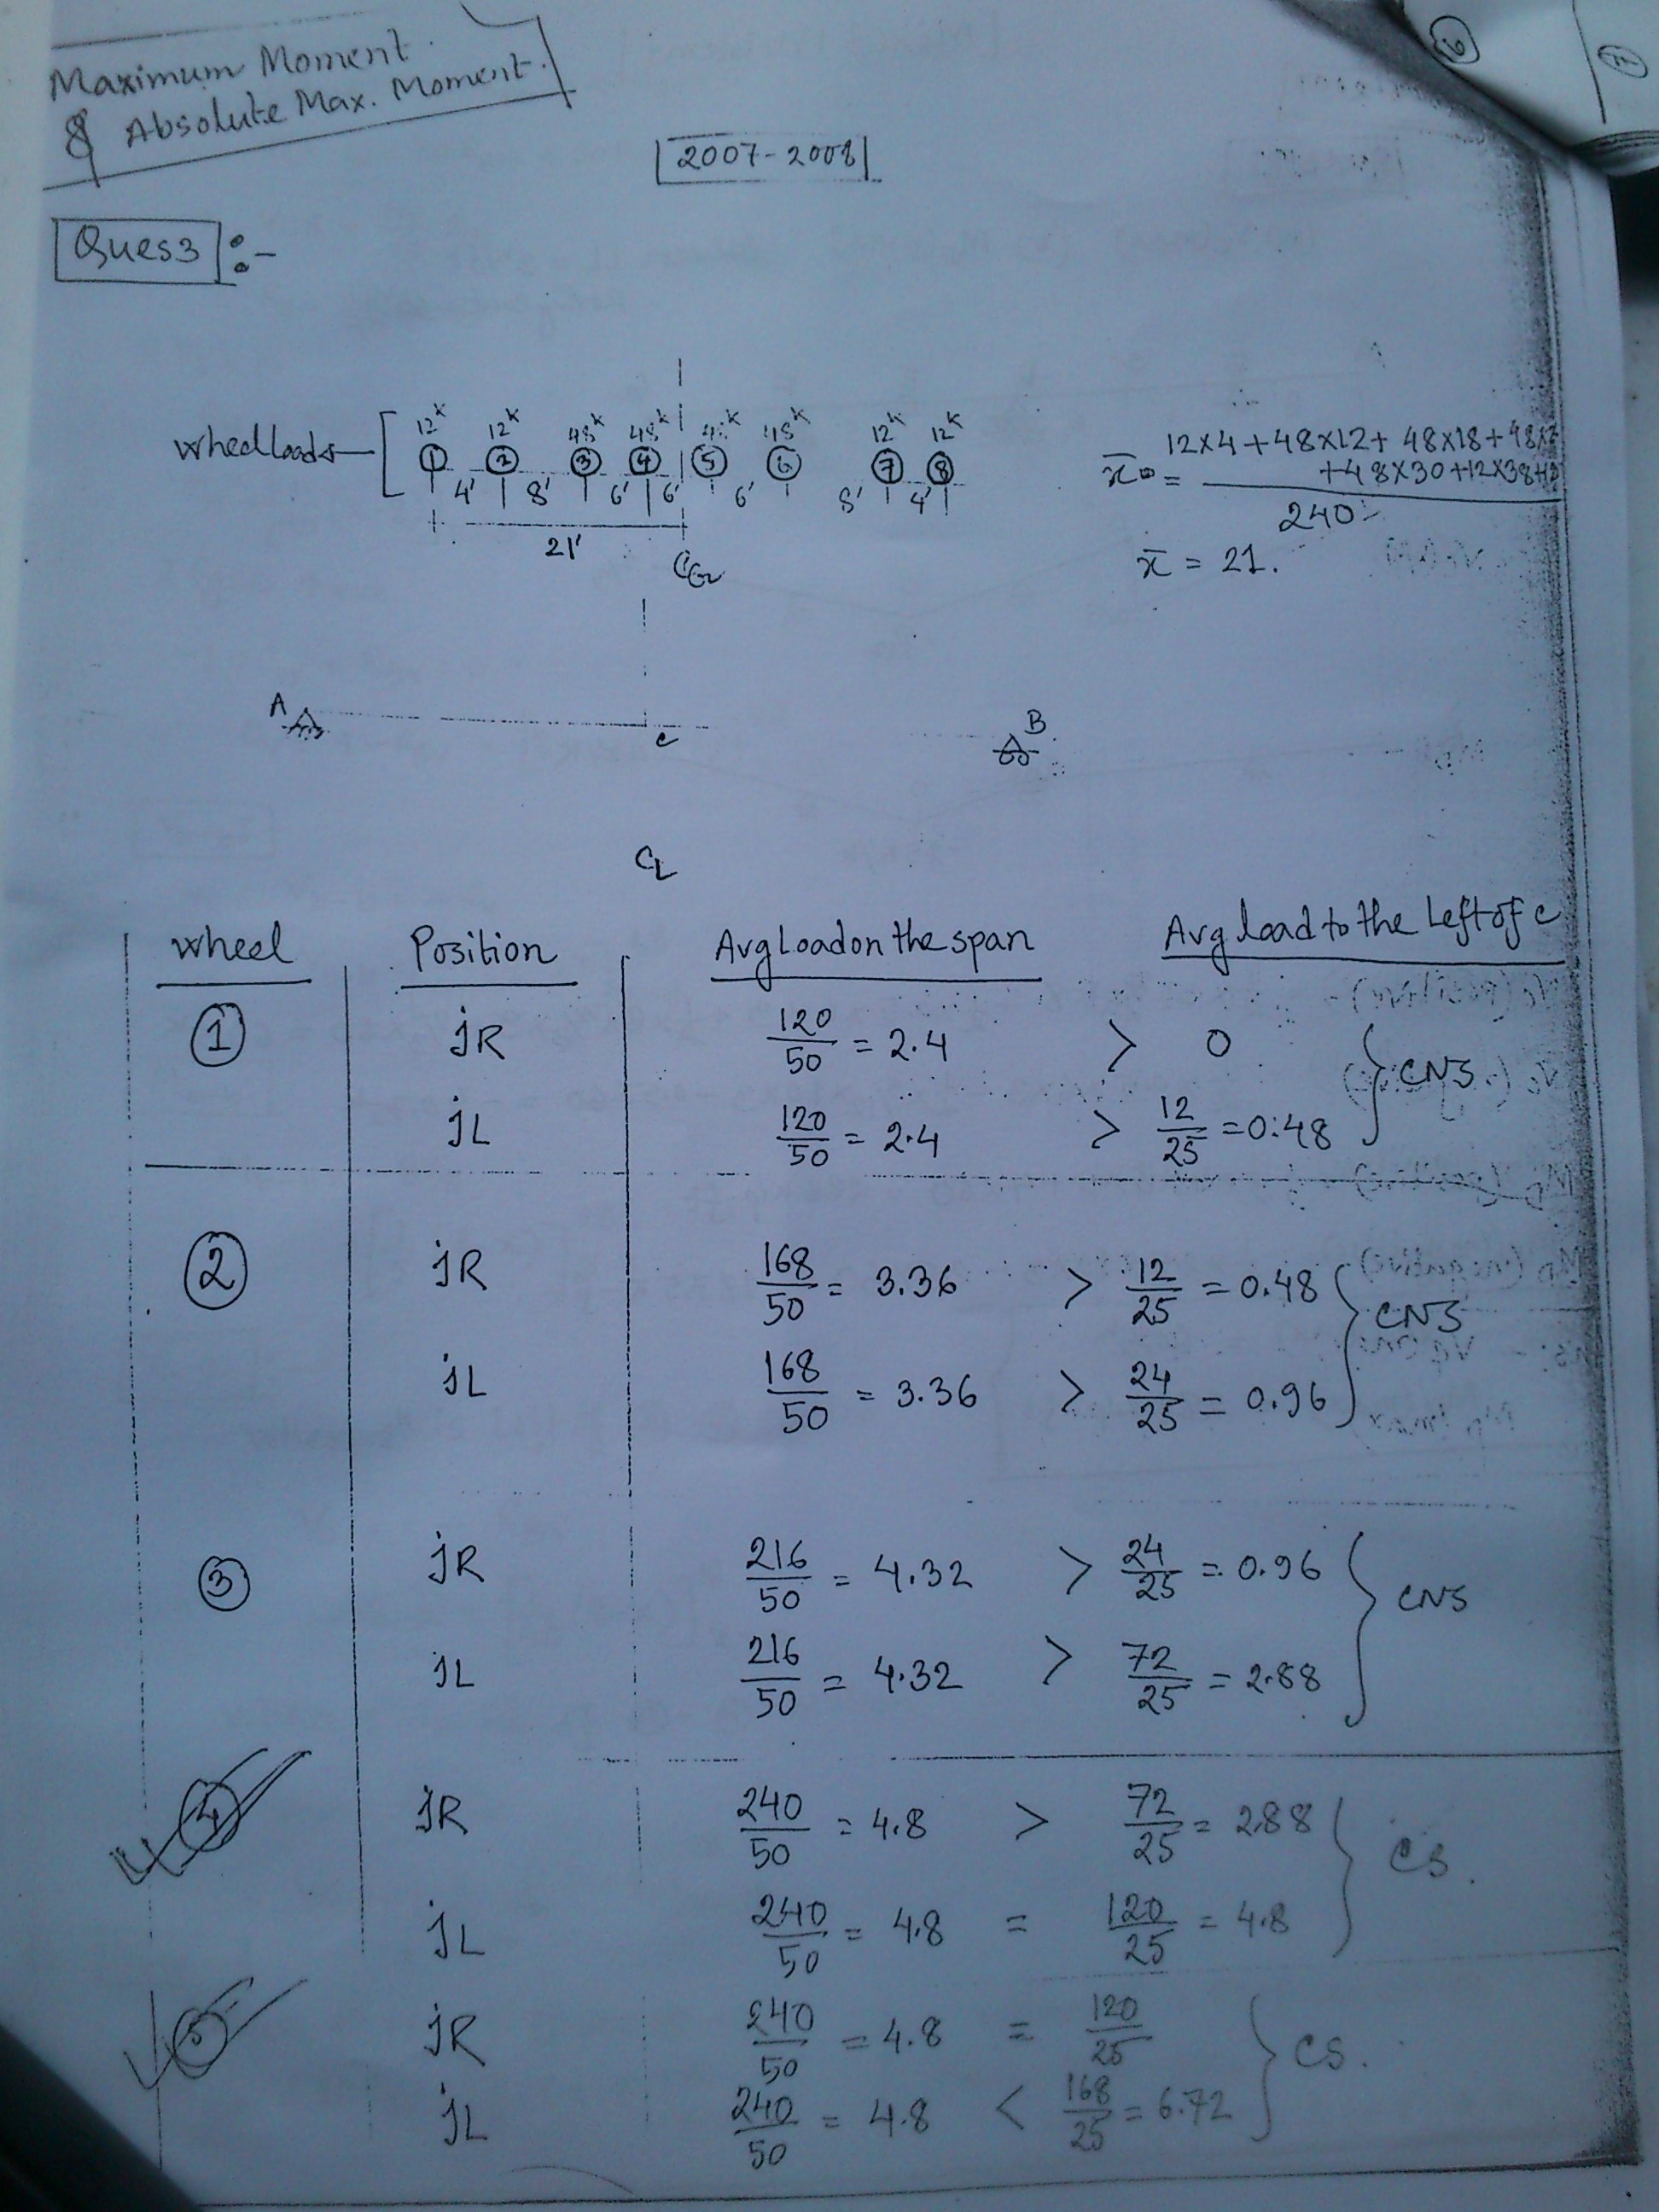 Maximum Moment
& Absolute Max. Moment.
2007-2008
Ques3 :-
wheel loads
12k 12k 48k 48k 48k 48k 12k 12k
1 2 3 4 5 6 7 8
4' 8' 6' 6' 6' 8' 4'
21'
CG
x̄ = 12×4+48×12+48×18+48×
+48×30+12×38+
240
x̄ = 21.
A
c
B
CL
wheel Position Avg Load on the span Avg load to the Left of c
1 JR 120/50 = 2.4 > 0 } CNS
JL 120/50 = 2.4 > 12/25 = 0.48
2 JR 168/50 = 3.36 > 12/25 = 0.48 } CNS
JL 168/50 = 3.36 > 24/25 = 0.96
3 JR 216/50 = 4.32 > 24/25 = 0.96 } CNS
JL 216/50 = 4.32 > 72/25 = 2.88
4 JR 240/50 = 4.8 > 72/25 = 2.88 } CS.
JL 240/50 = 4.8 = 120/25 = 4.8
5 JR 240/50 = 4.8 = 120/25 } CS.
JL 240/50 = 4.8 < 168/25 = 6.72